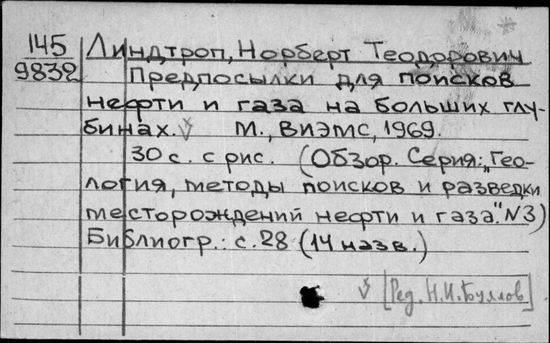 145 Линдтроп, Норберт Теодорович
9832 Предпосылки для поисков
нефти и газа на больших глу-
бинах. М., ВИЭМС, 1969.
30 с. с рис. (Обзор. Серия: „Гео-
логия, методы поисков и разведки
месторождений нефти и газа." №3)
Библиогр.: с. 28 (14 назв.)
[Ред. Н.И. Буллов]